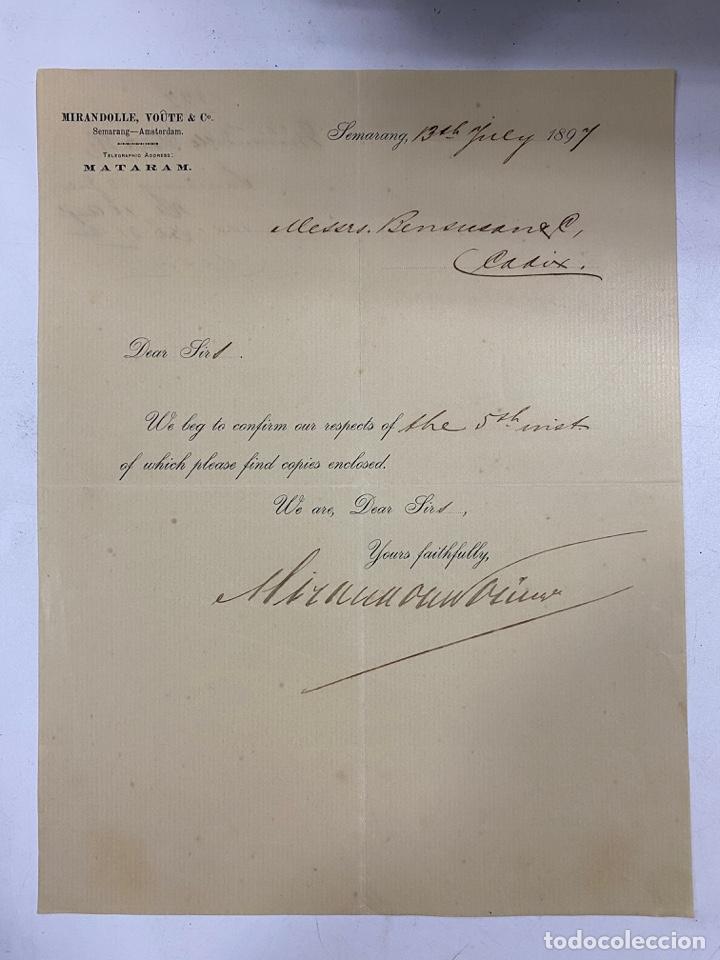 MIRANDOLLE, VOÛTE & Co.
Semarang—Amsterdam.
Telegraphic Address:
MATARAM.
Semarang, 13th July 1897
Messrs. Bensusan & C,
Cadix.
Dear Sirs.
We beg to confirm our respects of the 5th inst.
of which please find copies enclosed.
We are, Dear Sirs,
Yours faithfully,
todocoleccion
todocoleccion.net